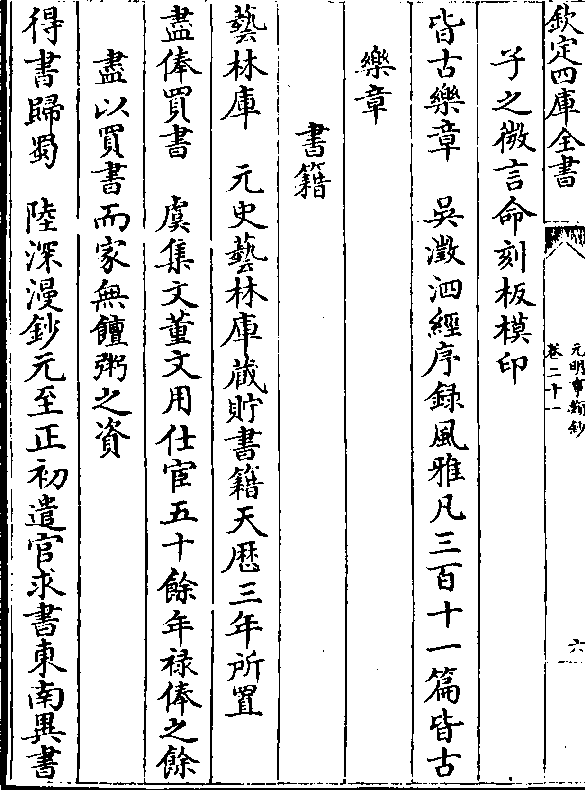 欽定四庫全書
元明事類鈔
卷二十一
六
子之微言命刻板模印
皆古樂章　吳澂泗經序録風雅凡三百十一篇皆古
樂章
書籍
藝林庫　元史藝林庫藏貯書籍天厯三年所置
盡俸買書　虞集文董文用仕宦五十餘年禄俸之餘
盡以買書而家無饘粥之資
得書歸蜀　陸深漫鈔元至正初遣官求書東南異書